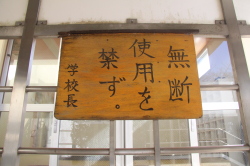 無断
使用を
禁ず。
学校長